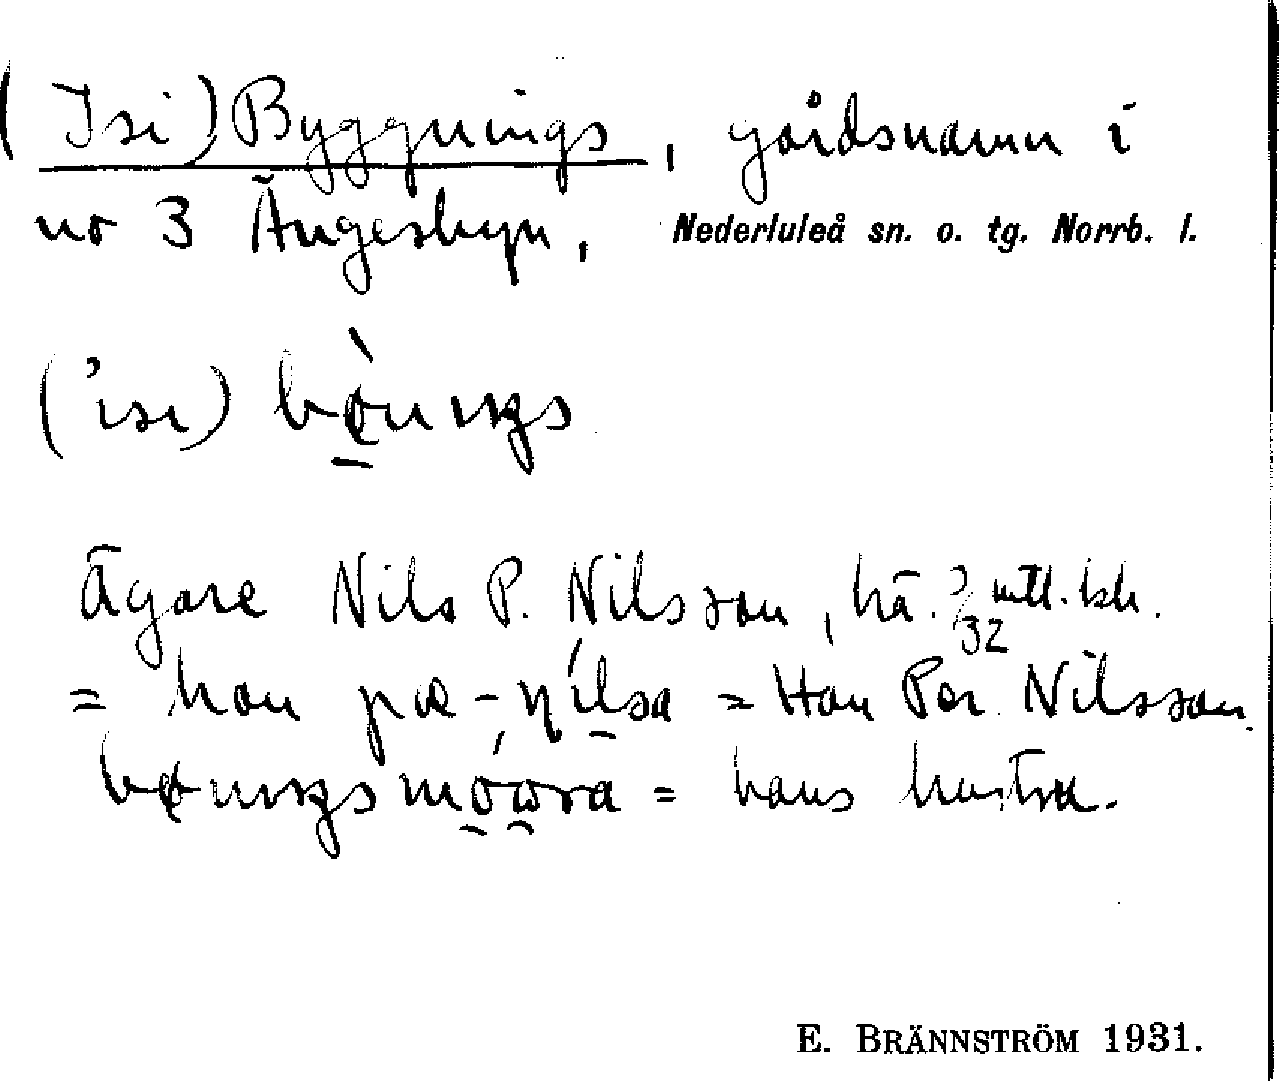 (Isi) Byggnings, gårdsnamn i
nr 3 Ängesbyn, Nederluleå sn. o. tg. Norrb. l.
('isi) bònings
Ägare Nils P. Nilsson, hä. 3/32 mtl. skr.
= han pæ-nílsa = Han Per Nilsson.
bøningsmóora = hans hustru.
E. BRÄNNSTRÖM 1931.